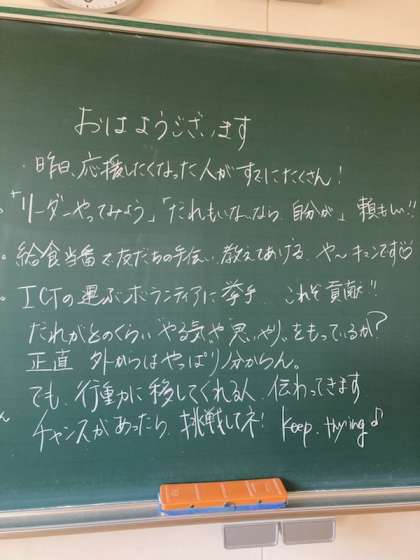 おはようございます
・昨日、応援したくなった人がすでにたくさん!
・「リーダーやってみよう」「だれもいないなら、自分が」頼もしい!!
・給食当番で友だちの手伝い、教えてあげる や〜キュンです♡
・ICTの運ぶボランティアに挙手 これぞ貢献!!
だれがどのくらいやる気や思いやりをもっているか?
正直 外からはやっぱり分からん。
でも、行動力に移してくれる人、伝わってきます
チャンスがあったら、挑戦してネ! Keep trying♪